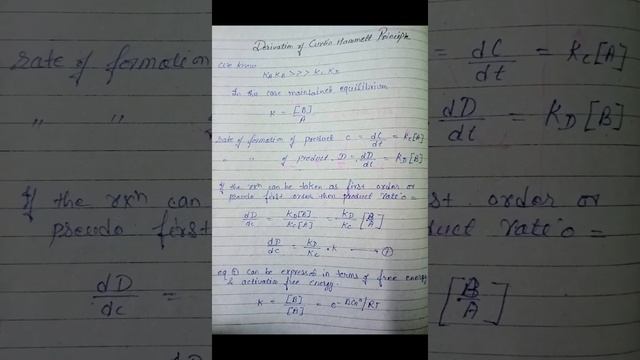 Derivation of Curtin Hammett Principle
we know
KA KB >>> K1 K2
In the case maintained equilibrium
K = [B]/A
rate of formation of product C = dC/dt = Kc[A]
" " of product D = dD/dt = KD[B]
If the rxn can be taken as first order or
pseudo first order then product ratio =
dD/dc = KD[B]/Kc[A] = KD/Kc [B/A]
dD/dc = KD/Kc . K → ①
eq ① can be expressed in terms of free energy
& activation free energy.
K = [B]/[A] = e-ΔG°/RT
rate of formation
" "
If the rxn can
pseudo first
dD/dc =
= dC/dt = Kc[A]
dD/dt = KD[B]
st order or
duct ratio =
[B/A]